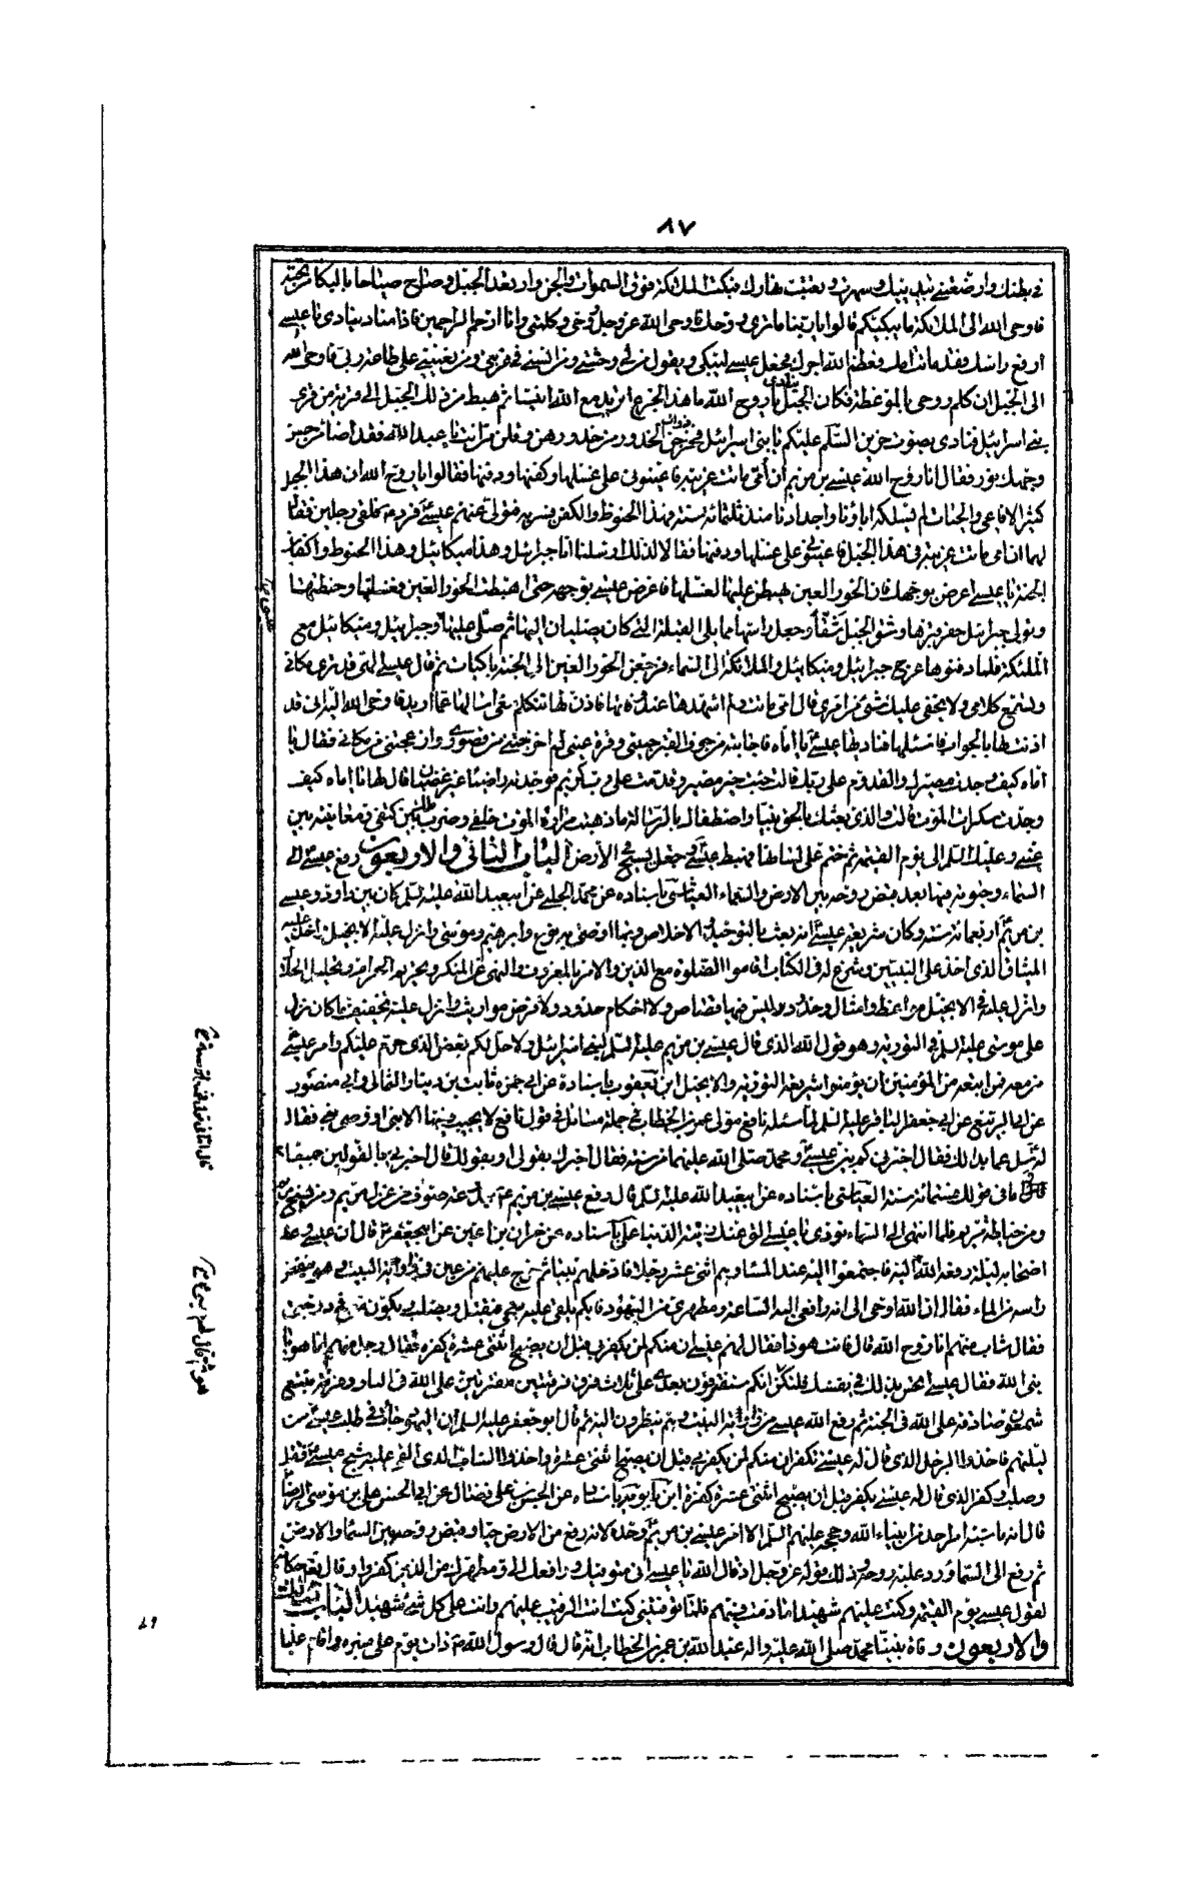 ٨٧
في بطنك وارضعتني بثدييك وسهرت وتعبت نهارك فبكت الملائكة فوق السموات والجن وارتعد الجبل وصاح صياحا بالبكاء
فاوحى الله الى الملائكة ما يبكيكم قالوا يا ربنا ما ترى روحك فاوحى الله عز وجل روحي وكلمتي وانا ارحم الراحمين فاذا مناد ينادي يا عيسى
ارفع راسك فقد ماتت امك فعظم الله اجرك فجعل عيسى يبكي ويقول من لي وحشتي ومن انسي في غربتي ومن يعينني على طاعة ربي فاوحى الله
الى الجبل ان كلم روحي بالموعظة فكان الجبل يا روح الله ما هذا الجزع اتريد مع الله انيسا ثم هبط من ذلك الجبل الى قرية من قرى
بني اسرائيل فنادى بصوت حزين السلم عليكم يا بني اسرائيل فخرجن الخدور من خدورهن وقلن من انت يا عبد الله فقد اضاء من حسن
وجهك نور فقال انا روح الله عيسى بن مريم ان امي ماتت غريبة فاعينوني على غسلها وكفنها ودفنها فقالوا يا روح الله ان هذا الجبل
كثير الافاعي والحيات لم يسلكه اباؤنا واجدادنا منذ ثلثمائة سنة وهذا الحنوط والكفن فتولى عنهم عيسى فرد على رجلين فقال
لهما ان امي ماتت غريبة في هذا الجبل فاعينوني على غسلها ودفنها فقالا لذلك ارسلنا انا جبرائيل وهذا ميكائيل وهذا الحنوط واكفان
الجنة يا عيسى اعرض بوجهك فان الحور العين هبطن عليها لغسلها فاعرض عيسى بوجهه حتى اهبطت الحور العين فغسلتها وحنطتها
وتولى جبرائيل حفر قبرها وشق الجبل شقا وجعل راسها مما يلي القبلة التي كان يصليان اليها ثم صلى عليها وجبرائيل وميكائيل مع
الملئكة فلما دفنوها عرج جبرائيل وميكائيل والملائكة الى السماء فرجعن الحور العين الى الجنة باكيات ثم قال عيسى الهي قد ترى مكاني
وتسمع كلامي ولا يخفى عليك شئ من امري فان امي ماتت ولم اشهدها عند وفاتها فاذن لها تتكلم معي اسالها عما اريد فاوحى الله اليه اني قد
اذنت لها بالجواب فاسئلها فناداها عيسى يا اماه فاجابته من جوف القبر حبيبي وقرة عيني لم اخرجتني من قصوري وازعجتني من مكاني فقال يا
اماه كيف وجدت مصيرك والقدوم على ربك قالت خيرت خير مصير وقدمت على رب كريم فوجدته راضيا غير غضبان قال لها يا اماه كيف
وجدت سكرات الموت قالت والذي بعثك بالحق نبيا واصطفاك بالرسالة ما ذهبت مرارة الموت من حلقي
عيني وعليك السلم الى يوم القيمة ثم ختم على لسانها فهبط عيسى وجعل يسيح في الأرض الباب الثاني والاربعون رفع عيسى الى
السماء وحنوطه فيها بعد قبض روحه بين الارض والسماء العياشي باسناده عن محمد الحلبي عن ابي عبد الله عليه السلم كان بين داود وعيسى
بن مريم اربعمائة سنة وكان شريعة عيسى انه بعث بالتوحيد والاخلاص وبما اوصى به نوح وابرهيم وموسى وانزل عليه الانجيل واخذ عليه
الميثاق الذي اخذ على النبيين وشرع له في الكتاب اقاموا الصلوة مع الدين والامر بالمعروف والنهي عن المنكر وتحريم الحرام وتحليل الحلال
وانزل عليه في الانجيل مواعظ وامثال وحدود وليس فيها قصاص ولا احكام حدود ولا فرض مواريث وانزل عليه تخفيف ما كان نزل
على موسى عليه السلم في التورية وهو قول الله الذي قال عيسى بن مريم عليه السلم لبني اسرائيل ولاحل لكم بعض الذي حرم عليكم وامر عيسى
من معه ممن اتبعه من المؤمنين ان يؤمنوا بشريعة التورية والانجيل ابن يعقوب باسناده عن ابي حمزة ثابت بن دينار الثمالي وابي منصور
عن ابي الربيع عن ابي جعفر الباقر عليه السلم لما سئله نافع مولى عمر بن الخطاب في جملة مسائل في قول نافع لا يجيب فيها الا نبي او وصي نبي فقال
له سل عما بدا لك فقال اخبرني كم بين عيسى ومحمد صلى الله عليهما من سنة فقال اخبرك بقولي او بقولك قال اخبرني بالقولين جميعا
قال اما في قولك فستمائة سنة العياشي باسناده عن ابي عبد الله عليه السلم قال رفع عيسى بن مريم عليه بمدرعة صوف من غزل مريم ومن نسج مريم
ومن خياطة مريم فلما انتهى الى السماء نودي يا عيسى الق عنك زينة الدنيا علي باسناده عن حمران بن اعين عن ابي جعفر قال ان عيسى وعد
اصحابه ليلة رفعه الله اليه فاجتمعوا اليه عند المساء وهم اثنى عشر رجلا فادخلهم بيتا ثم خرج عليهم من عين في زاوية البيت وهو ينفض
راسه من الماء فقال ان الله اوحى الى انه رافعي اليه الساعة ومطهري من اليهود فايكم يلقى عليه شبحي فيقتل ويصلب ويكون معي في درجتي
فقال شاب منهم انا يا روح الله قال فانت هو ذا فقال لهم عيسى ان منكم لمن يكفر بي قبل ان يصبح اثنتي عشرة كفرة فقال رجل منهم انا هو يا
نبي الله فقال عيسى اتحس بذلك في نفسك فلتكن انكم ستفترقون بعدي على ثلاث فرق فرقتين مفتريتين على الله في النار وفرقة تتبع
شمعون صادقة على الله في الجنة ثم رفع الله عيسى من زاوية البيت وهم ينظرون اليه ثم قال ابو جعفر عليه السلم ان اليهود جائت في طلب عيسى من
ليلتهم فاخذوا الرجل الذي قال له عيسى ان منكم لمن يكفر بي قبل ان يصبح اثنتي عشرة واخذوا الشاب الذي القي عليه شبح عيسى فقتل
وصلب وكفر الذي قال له عيسى يكفر قبل ان يصبح اثنتي عشرة كفرة ابن بابويه باسناده عن الحسن بن علي بن فضال عن ابي الحسن علي بن موسى الرضا
قال انه ما شبه امر احد من انبياء الله وحججه عليهم السلم الا امر عيسى بن مريم وحده لانه رفع من الارض حيا وقبض روحه بين السماء والارض
ثم رفع الى السماء ورد عليه روحه وذلك قوله عز وجل اذ قال الله يا عيسى اني متوفيك ورافعك الي ومطهرك من الذين كفروا وقال تعالى حكاية
لقول عيسى يوم القيمة وكنت عليهم شهيدا ما دمت فيهم فلما توفيتني كنت انت الرقيب عليهم وانت على كل شئ شهيد الباب الثالث
والاربعون وفاة نبينا محمد صلى الله عليه واله عبد الله بن عمر بن الخطاب انه قال قال رسول الله ذات يوم على منبره واقام عليا